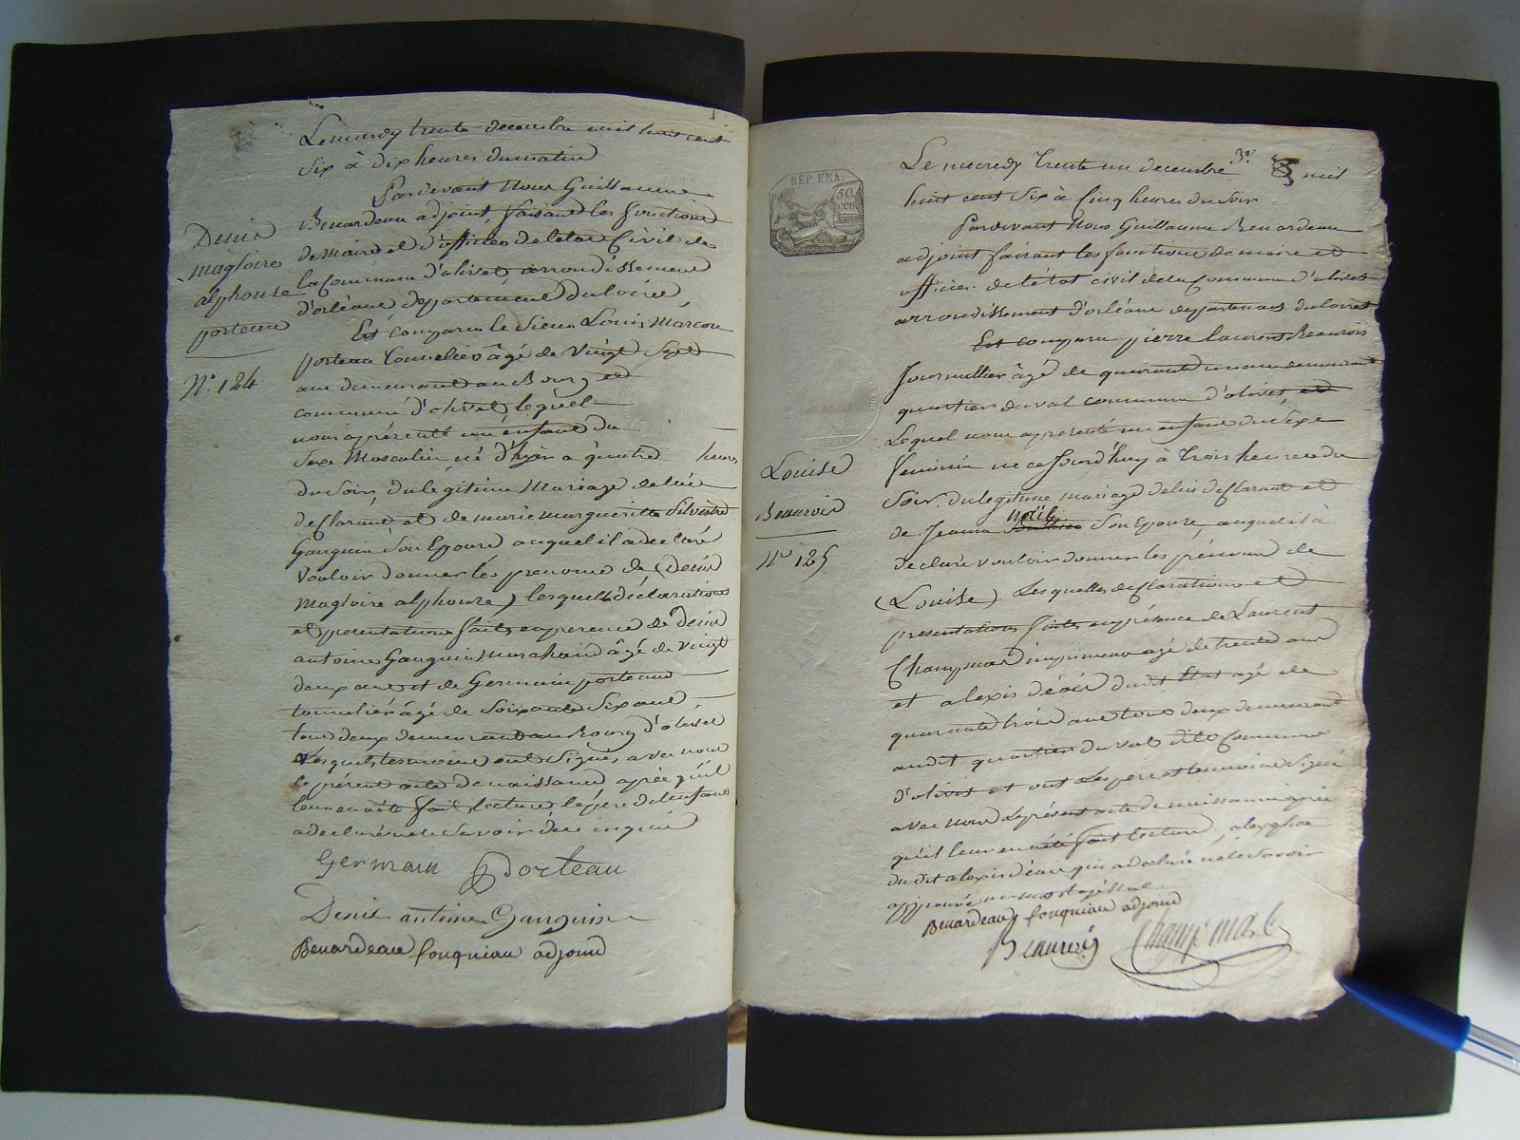 Le mardy trente decembre mil huit cent
Six à dix heures du matin
Pardevant Nous Guillaume
Benardeau adjoint faisant les fonctions
de Maire et d'officier de l'état Civil de
la Commune d'olivet arrondissement
d'orléans département du loiret,
Est comparu le Sieur Louis Marcou
porteau tonnelier âgé de Vingt Sept
ans demeurant au Bourg et
commune d'olivet lequel
nous a présenté un enfant du
Sexe Masculin né d'hyer à quatre heures
du Soir, du légitime Mariage de lui
déclarant et de marie marguerite Silvestre
Gauguin Son Epouse auquel il a déclaré
Vouloir donner les prenoms de (Denis
Magloire alphonse) lesquelles déclarations
et présentations faites en presence de Denis
antoine Gauguin Marchand âgé de vingt
deux ans et de Germain porteau
tonnelier âgé de Soixante Six ans
tous deux demeurant au Bourg d'olivet
Lesquels témoins ont Signés avec nous
le présent acte de naissance après qu'il
leur en a été fait lecture le père de l'enfant
a declaré ne le Savoir de ce enquis
Germain Porteau
Denis antoine Gauguin
Benardeau fouqniau adjoint
Denis
magloire
alphonse
porteau
N.° 184
3e
Le mecredy trente un decembre mil
huit cent Six à Cinq heures du Soir
Pardevant Nous Guillaume Benardeau
adjoint faisant les fonctions de maire et
officier de l'état civil de la Commune d'olivet
arrondissement d'orléans departement du loiret
Est comparu pierre laurent Beauvois
Journallier âgé de quarante un ans demeurant
quartier du val commune d'olivet, et
Lequel nous a presenté un enfant du Sexe
feminin né ce Jourd'huy à trois heures du
Soir. du légitime mariage de lui déclarant et
noël
de Jeanne Son Epouse, auquel il à
declaré vouloir donner les prénoms de
(Louise) Lesquelles déclarations et
presentations faites en présence de Laurent
Champmas âgé de trente ans
et alexis déais dudit Etat agé de
quarante trois ans tous deux demeurant
audit quartier du val dite Commune
d'olivet et ont Les père et temoins Signé
avec nous Le présent acte de naissance après
qu'il leur en a été fait lecture, alexception
du dit alexis déais qui a déclaré ne le Savoir
approuvé un mot rayé nul
Benardeau fouqniau adjoint
Beauvois Champmas
REP. FRA.
50.
CEN
Louise
Beauvois
N° 185